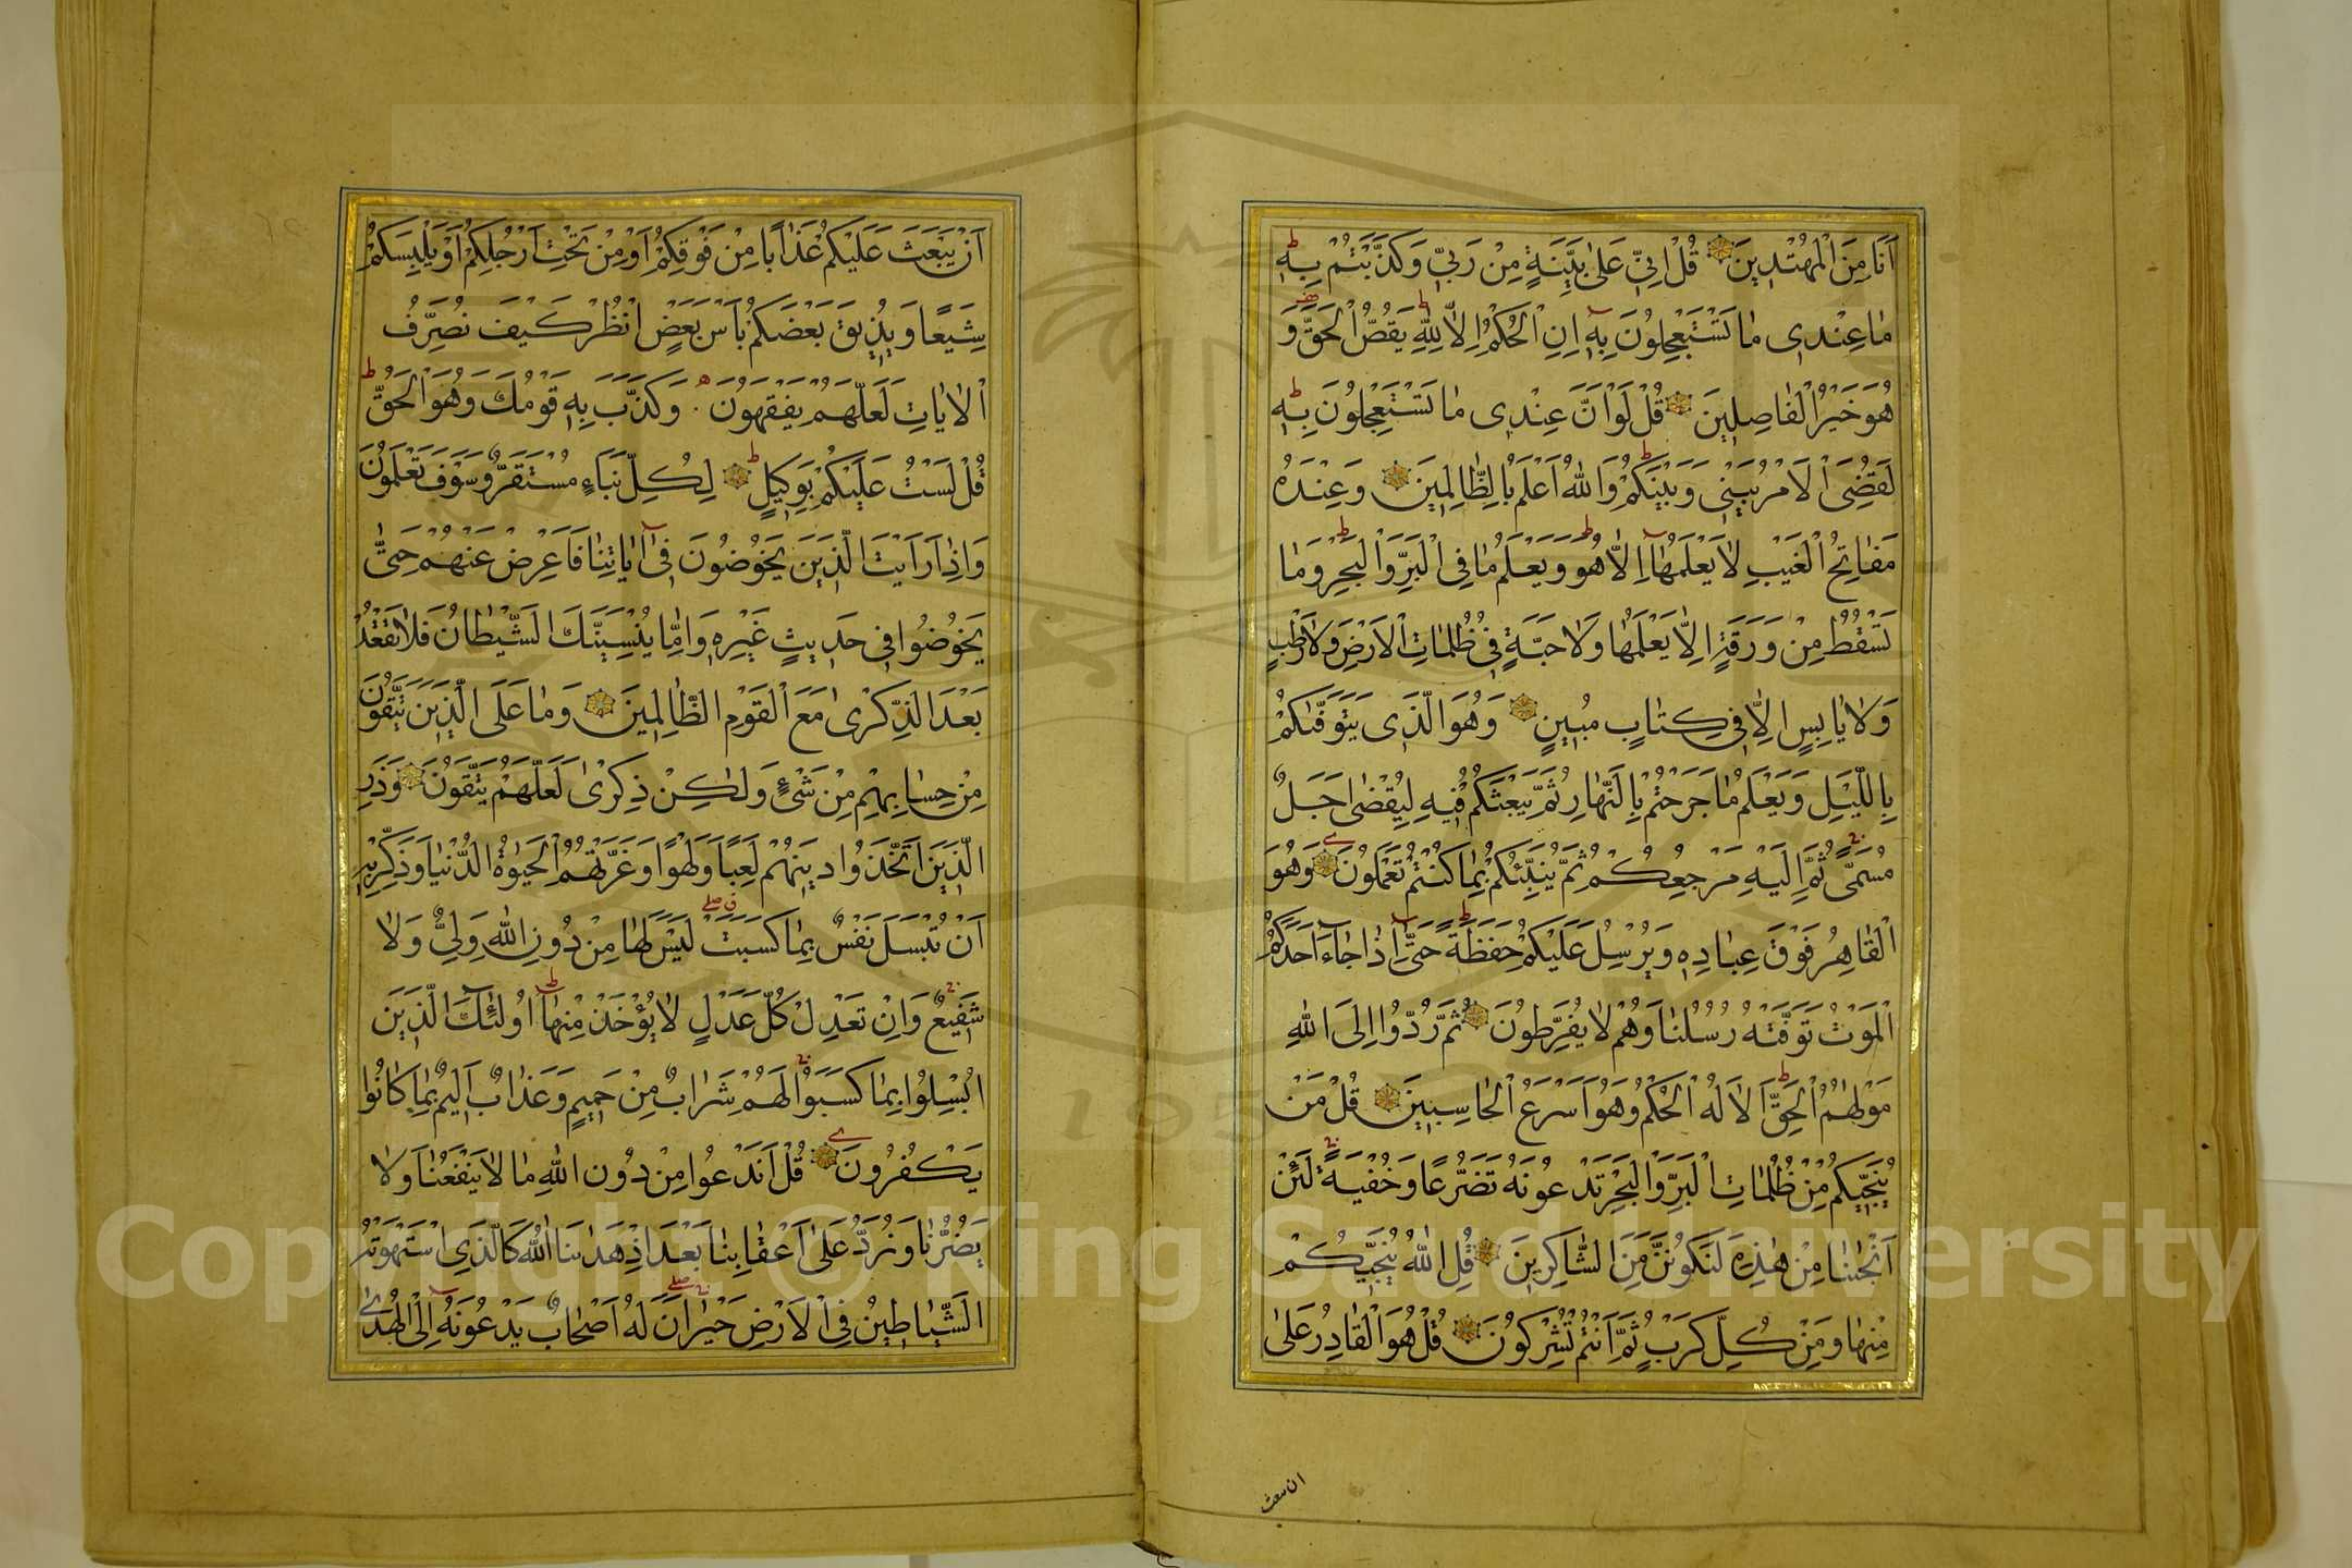 اَنَا مِنَ الْمُهْتَدِينَ قُلْ اِنِّي عَلٰى بَيِّنَةٍ مِنْ رَبِّي وَكَذَّبْتُمْ بِهِ
مٰا عِنْدِي مٰا تَسْتَعْجِلُونَ بِهِ اِنِ الْحُكْمُ اِلاّٰ لِلّٰهِ يَقُصُّ الْحَقَّ وَ
هُوَ خَيْرُ الْفٰاصِلِينَ قُلْ لَوْ اَنَّ عِنْدِي مٰا تَسْتَعْجِلُونَ بِهِ
لَقُضِيَ الْاَمْرُ بَيْنِي وَبَيْنَكُمْ وَاللّٰهُ اَعْلَمُ بِالظّٰالِمِينَ وَعِنْدَهُ
مَفٰاتِحُ الْغَيْبِ لٰا يَعْلَمُهٰا اِلاّٰ هُوَ وَيَعْلَمُ مٰا فِي الْبَرِّ وَالْبَحْرِ وَمٰا
تَسْقُطُ مِنْ وَرَقَةٍ اِلاّٰ يَعْلَمُهٰا وَلٰا حَبَّةٍ فِي ظُلُمٰاتِ الْاَرْضِ وَلٰا رَطْبٍ
وَلٰا يٰابِسٍ اِلاّٰ فِي كِتٰابٍ مُبِينٍ وَهُوَ الَّذِي يَتَوَفّٰيكُمْ
بِاللَّيْلِ وَيَعْلَمُ مٰا جَرَحْتُمْ بِالنَّهٰارِ ثُمَّ يَبْعَثُكُمْ فِيهِ لِيُقْضٰى اَجَلٌ
مُسَمًّى ثُمَّ اِلَيْهِ مَرْجِعُكُمْ ثُمَّ يُنَبِّئُكُمْ بِمٰا كُنْتُمْ تَعْمَلُونَ وَهُوَ
الْقٰاهِرُ فَوْقَ عِبٰادِهِ وَيُرْسِلُ عَلَيْكُمْ حَفَظَةً حَتّٰى اِذٰا جٰاءَ اَحَدَكُمُ
الْمَوْتُ تَوَفَّتْهُ رُسُلُنٰا وَهُمْ لٰا يُفَرِّطُونَ ثُمَّ رُدُّوا اِلَى اللّٰهِ
مَوْلٰهُمُ الْحَقِّ اَلٰا لَهُ الْحُكْمُ وَهُوَ اَسْرَعُ الْحٰاسِبِينَ قُلْ مَنْ
يُنَجِّيكُمْ مِنْ ظُلُمٰاتِ الْبَرِّ وَالْبَحْرِ تَدْعُونَهُ تَضَرُّعًا وَخُفْيَةً لَئِنْ
اَنْجٰينٰا مِنْ هٰذِهِ لَنَكُونَنَّ مِنَ الشّٰاكِرِينَ قُلِ اللّٰهُ يُنَجِّيكُمْ
مِنْهٰا وَمِنْ كُلِّ كَرْبٍ ثُمَّ اَنْتُمْ تُشْرِكُونَ قُلْ هُوَ الْقٰادِرُ عَلٰى
ان يبعث
اَنْ يَبْعَثَ عَلَيْكُمْ عَذٰابًا مِنْ فَوْقِكُمْ اَوْ مِنْ تَحْتِ اَرْجُلِكُمْ اَوْ يَلْبِسَكُمْ
شِيَعًا وَيُذِيقَ بَعْضَكُمْ بَأْسَ بَعْضٍ انْظُرْ كَيْفَ نُصَرِّفُ
الْاٰيٰاتِ لَعَلَّهُمْ يَفْقَهُونَ وَكَذَّبَ بِهِ قَوْمُكَ وَهُوَ الْحَقُّ
قُلْ لَسْتُ عَلَيْكُمْ بِوَكِيلٍ لِكُلِّ نَبَاءٍ مُسْتَقَرٌّ وَسَوْفَ تَعْلَمُونَ
وَاِذٰا رَاَيْتَ الَّذِينَ يَخُوضُونَ فِي اٰيٰاتِنٰا فَاَعْرِضْ عَنْهُمْ حَتّٰى
يَخُوضُوا فِي حَدِيثٍ غَيْرِهِ وَاِمّٰا يُنْسِيَنَّكَ الشَّيْطٰانُ فَلٰا تَقْعُدْ
بَعْدَ الذِّكْرٰى مَعَ الْقَوْمِ الظّٰالِمِينَ وَمٰا عَلَى الَّذِينَ يَتَّقُونَ
مِنْ حِسٰابِهِمْ مِنْ شَيْءٍ وَلٰكِنْ ذِكْرٰى لَعَلَّهُمْ يَتَّقُونَ وَذَرِ
الَّذِينَ اتَّخَذُوا دِينَهُمْ لَعِبًا وَلَهْوًا وَغَرَّتْهُمُ الْحَيٰوةُ الدُّنْيٰا وَذَكِّرْ بِهِ
اَنْ تُبْسَلَ نَفْسٌ بِمٰا كَسَبَتْ لَيْسَ لَهٰا مِنْ دُونِ اللّٰهِ وَلِيٌّ وَلٰا
شَفِيعٌ وَاِنْ تَعْدِلْ كُلَّ عَدْلٍ لٰا يُؤْخَذْ مِنْهٰا اُولٰئِكَ الَّذِينَ
اُبْسِلُوا بِمٰا كَسَبُوا لَهُمْ شَرٰابٌ مِنْ حَمِيمٍ وَعَذٰابٌ اَلِيمٌ بِمٰا كٰانُوا
يَكْفُرُونَ قُلْ اَنَدْعُوا مِنْ دُونِ اللّٰهِ مٰا لٰا يَنْفَعُنٰا وَلٰا
يَضُرُّنٰا وَنُرَدُّ عَلٰى اَعْقٰابِنٰا بَعْدَ اِذْ هَدٰىنَا اللّٰهُ كَالَّذِي اسْتَهْوَتْهُ
الشَّيٰاطِينُ فِي الْاَرْضِ حَيْرٰانَ لَهُ اَصْحٰابٌ يَدْعُونَهُ اِلَى الْهُدَى
Copyright © King Saud University